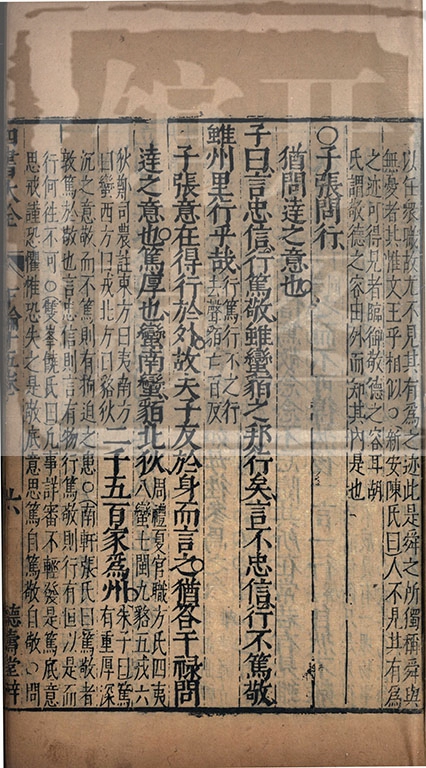 以任衆職故尤不見其有爲之迹此是舜之所獨稱舜與
無憂者其惟文王乎相似○新安陳氏曰人不見其有爲
之迹可得見者臨御敬德之容耳胡
氏謂敬德之容因外而知其内是也
○子張問行
猶問達之意也
子曰言忠信行篤敬雖蠻貊之邦行矣言不忠信行不篤敬
雖州里行乎哉行篤行不之行
去聲貊亡百反
子張意在得行於外故夫子反於身而言之猶答干祿問
達之意也篤厚也蠻南蠻貊北狄周禮夏官職方氏四夷
八蠻七閩九貉五戎六
狄鄭司農註東方曰夷南方
曰蠻西方曰戎北方曰貉狄二千五百家爲州朱子曰篤
有重厚深
沉之意敬而不篤則有拘迫之患○南軒張氏曰篤敬者
敦篤於敬也言忠信則言有物行篤敬則行有恒以是而
行何往不可○雙峯饒氏曰凡事詳審不輕發是篤底意
思戒謹恐懼惟恐失之是敬底意思篤自篤敬自敬○問
四書大全
論十五卷
九
德壽堂梓